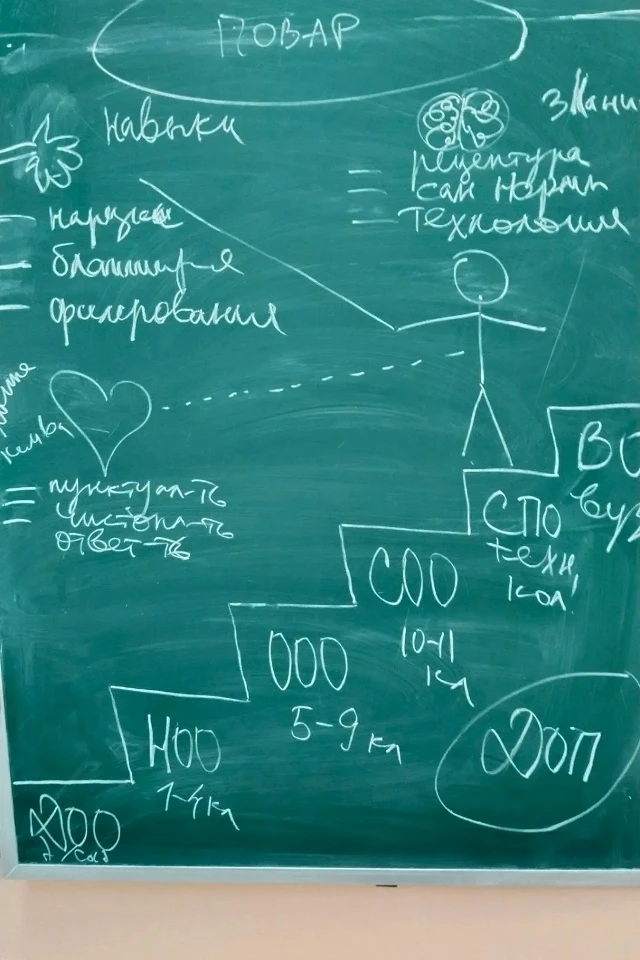 ПОВАР
навыки
знани
рецептура
сан нормы
технология
нарезка
филирования
пунктуал-ть
чистопл-ть
ответ-ть
ВО
вуз
СПО
техн,
кол!
СОО
10-11
кл
ООО
5-9 кл
НОО
1-4 кл
ДОО
д/сад
ДОП